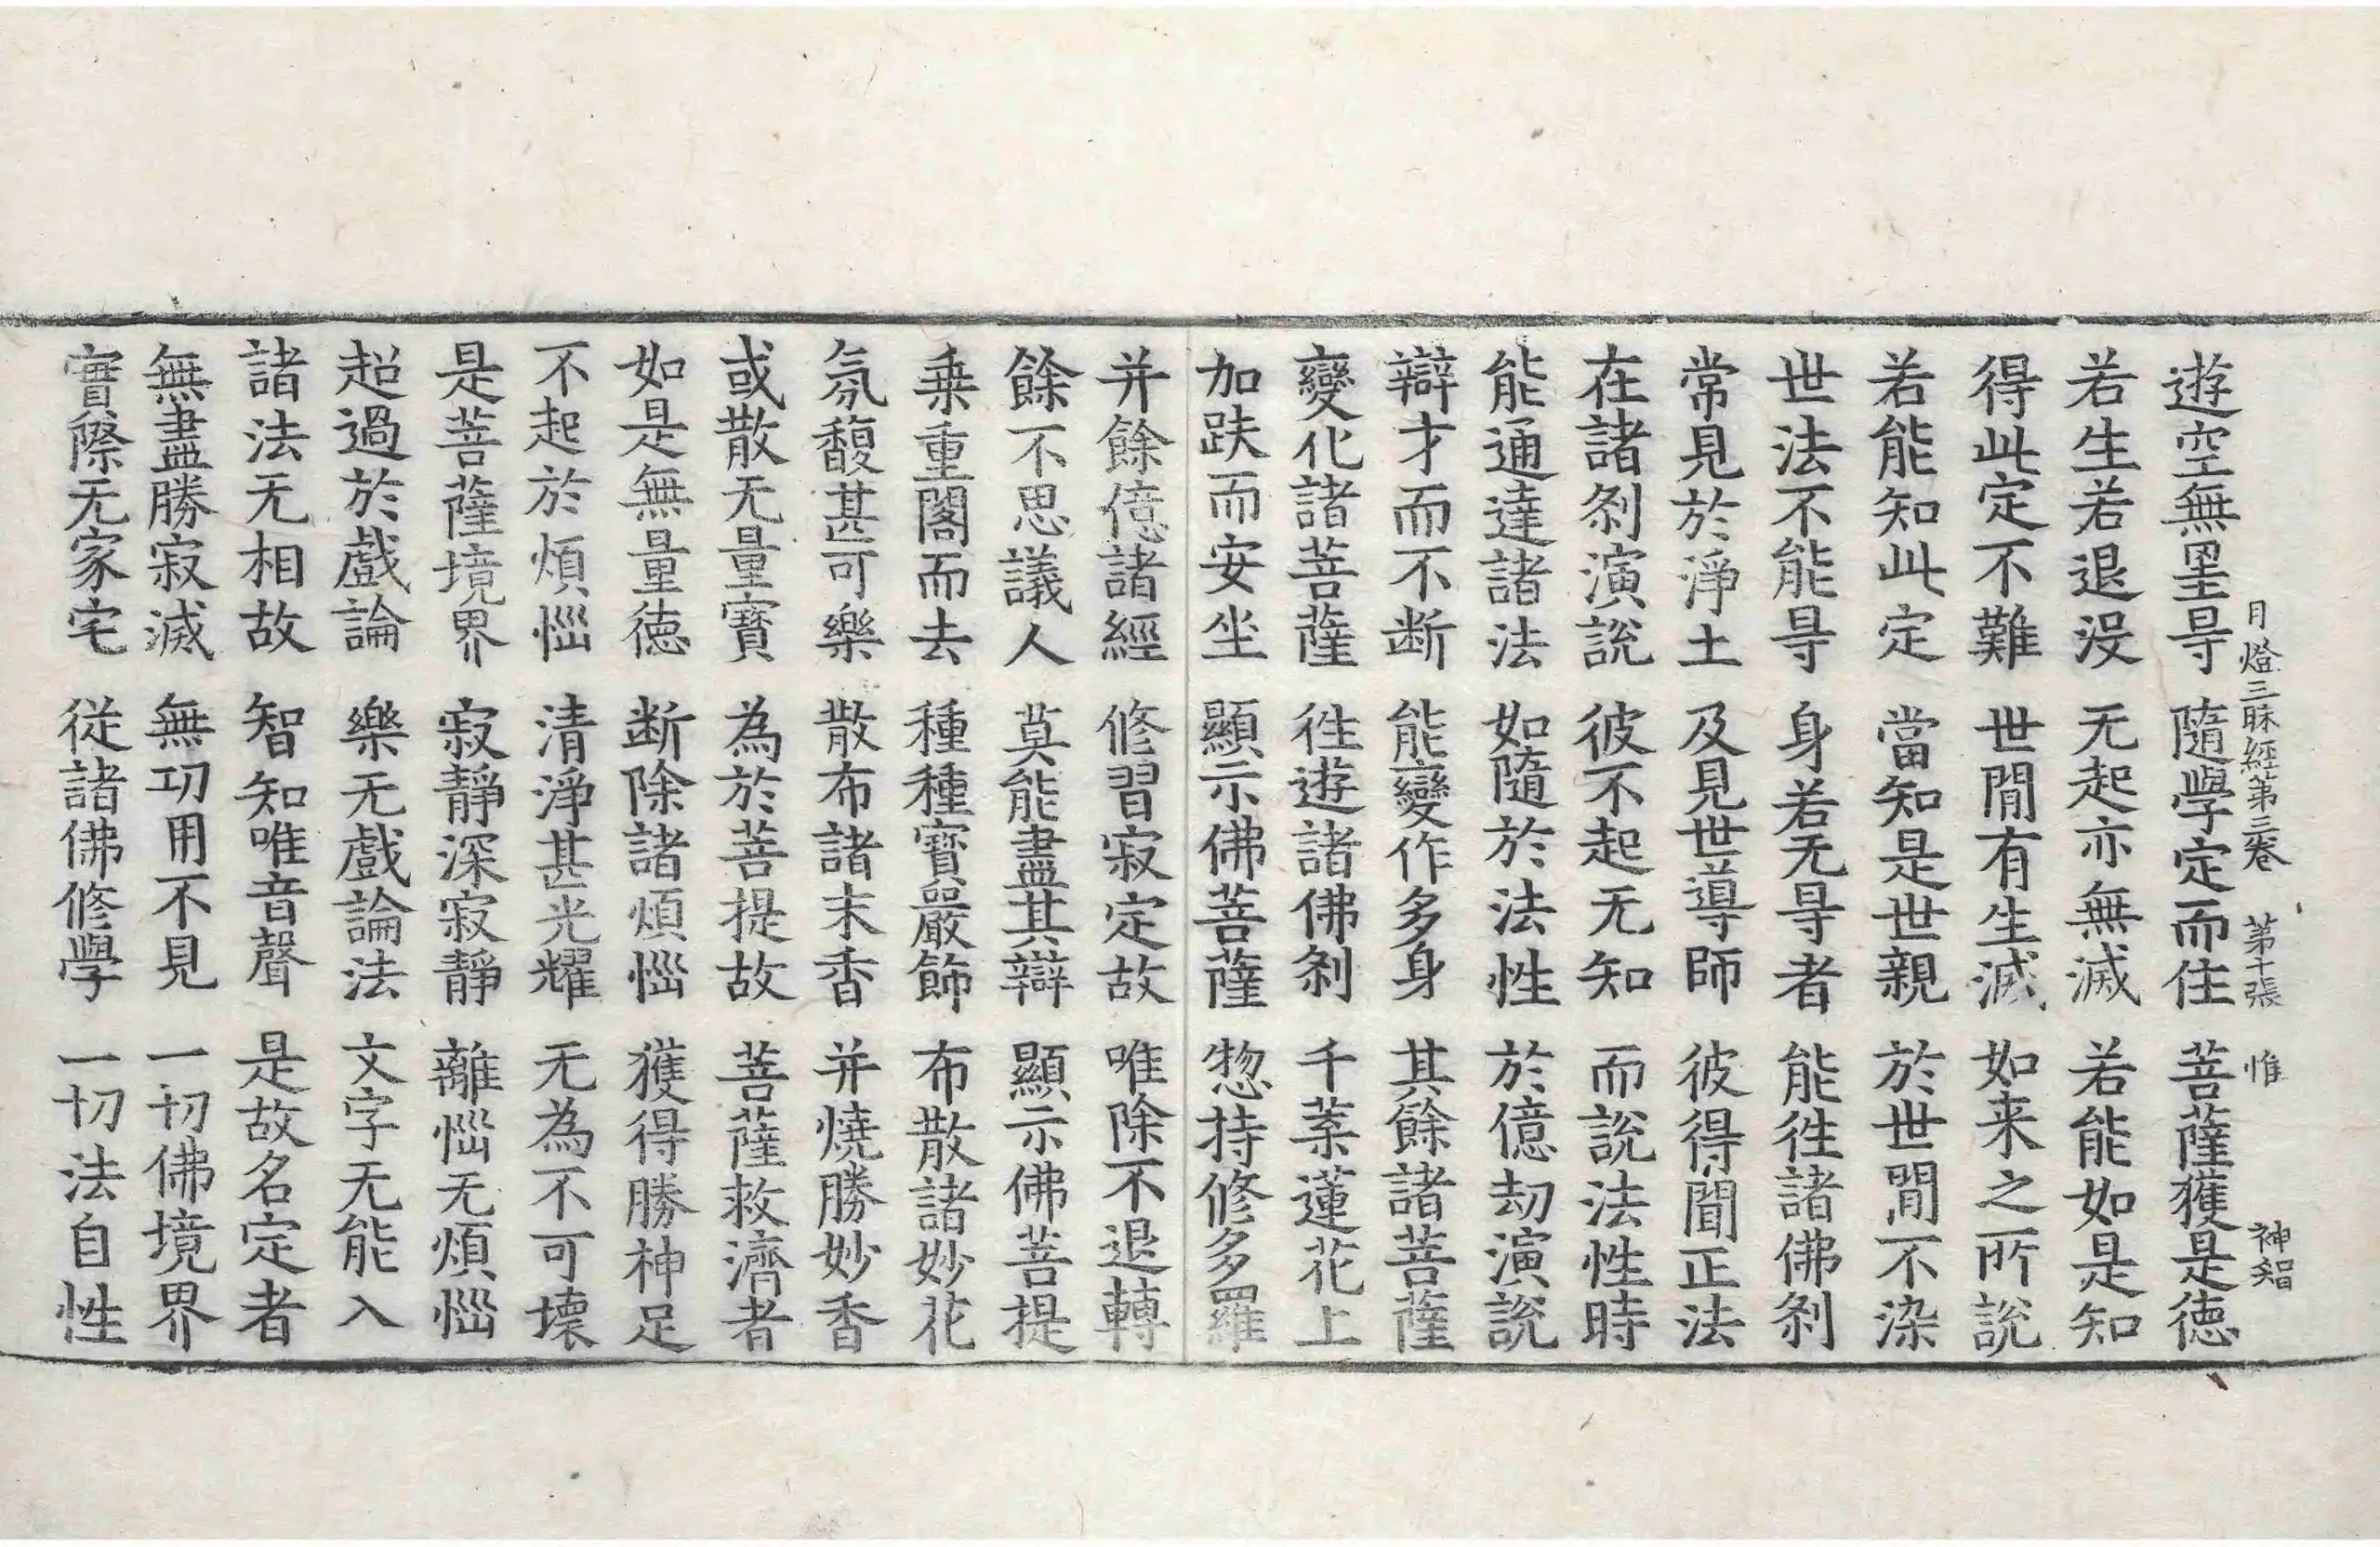 月燈三昧經第三卷 第十張 惟 神智
遊空無罣㝵 隨學定而住 菩薩獲是德
若生若退没 无起亦無滅 若能如是知
得此定不難 世閒有生滅 如来之所說
若能知此定 當知是世親 於世閒不染
世法不能㝵 身若无㝵者 能徃諸佛刹
常見於淨土 及見世導師 彼得聞正法
在諸刹演說 彼不起无知 而說法性時
能通達諸法 如隨於法性 於億劫演說
辯才而不断 能變作多身 其餘諸菩薩
變化諸菩薩 徃遊諸佛刹 千葉蓮花上
加趺而安坐 顯示佛菩薩 惣持修多羅
并餘億諸經 修習寂定故 唯除不退轉
餘不思議人 莫能盡其辯 顯示佛菩提
乗重閣而去 種種寳嚴飾 布散諸妙花
氛馥甚可樂 散布諸末香 并燒勝妙香
或散无量寳 為於菩提故 菩薩救濟者
如是無量德 断除諸煩惱 獲得勝神足
不起於煩惱 清淨甚光耀 无為不可壊
是菩薩境界 寂靜深寂靜 離惱无煩惱
超過於戲論 樂无戲論法 文字无能入
諸法无相故 智知唯音聲 是故名定者
無盡勝寂滅 無功用不見 一切佛境界
實際无家宅 従諸佛修學 一切法自性